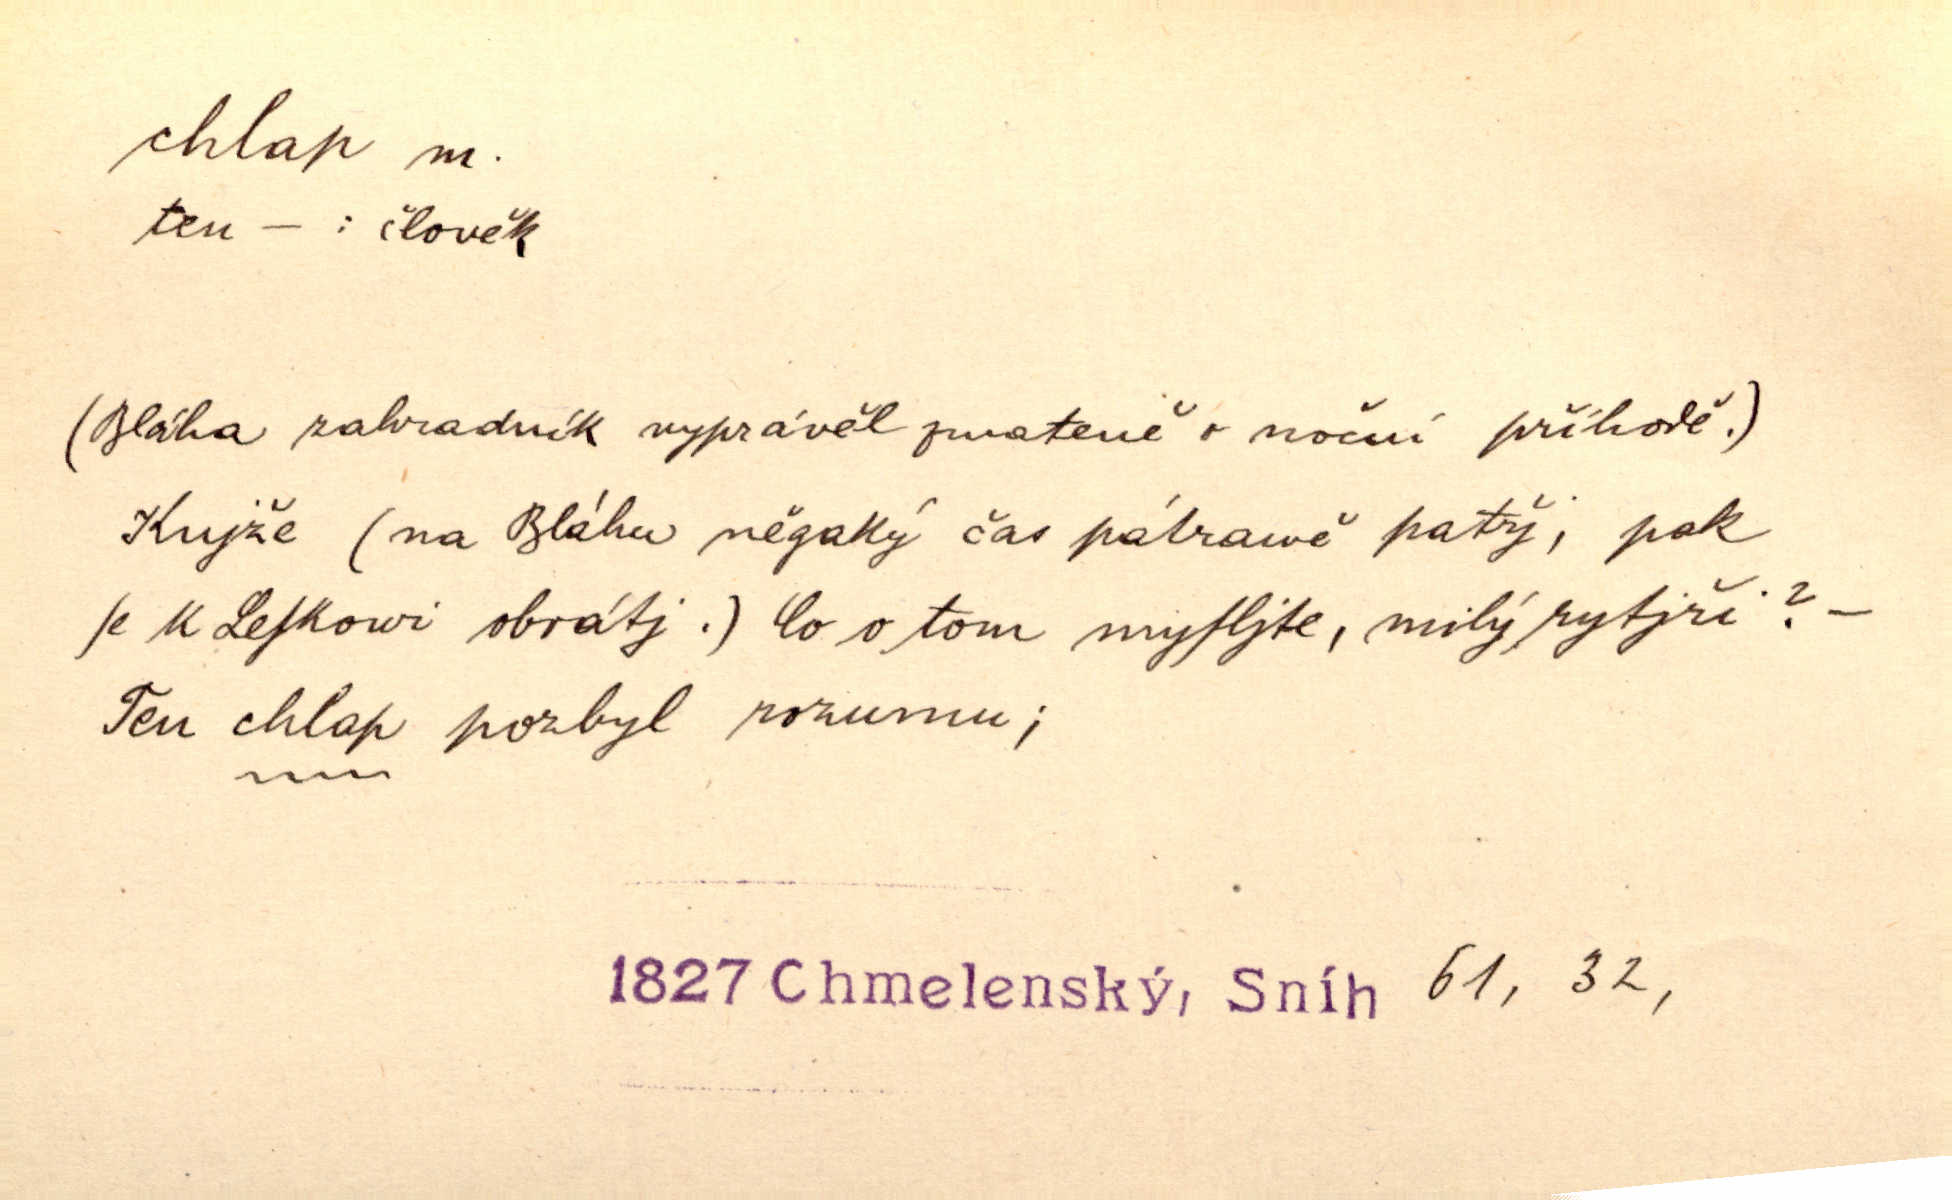 chlap m.
ten — : člověk
(Bláha zahradník vyprávěl zmateně o noční příhodě.)
Knjže (na Bláhu něgaký čas pátrawě patřj, pak
ſe k Leſkowi obrátj.) Co o tom myſljte, milý rytjři? —
Ten chlap pozbyl rozumu;
1827 Chmelenský, Sníh 61, 32,